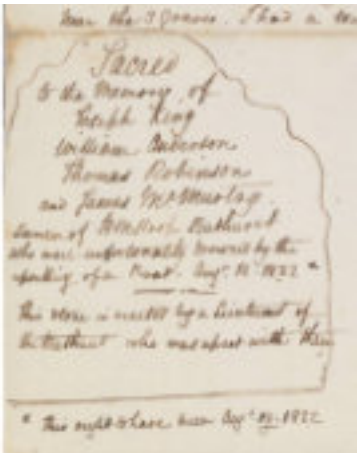 near the 3 Graves. I had a
Sacred
to the Memory of
Joseph King
William Anderson
Thomas Robinson
and James McMurtay
Seamen of HM Sloop Bathurst
who were unfortunately drowned by the
upsetting of a Boat. Augt. 1822 *
This stone is erected by a Lieutenant of
the Bathurst who was upset with them
* This ought to have been Augt. 1822